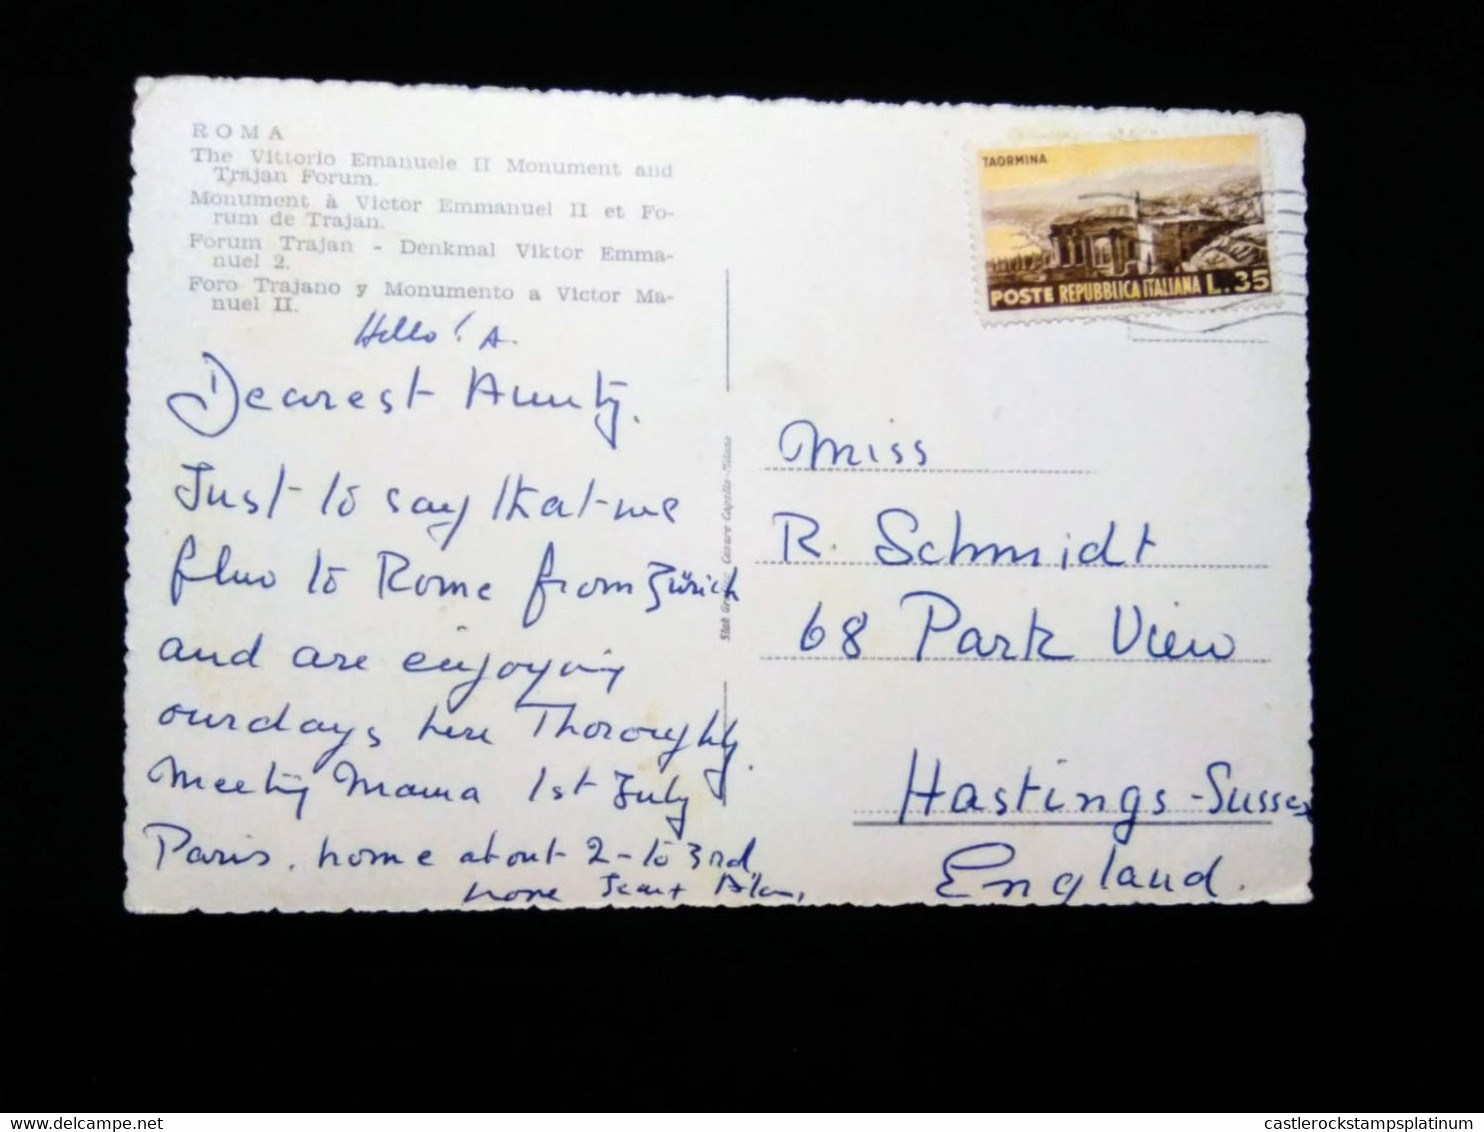 ROMA
The Vittorio Emanuele II Monument and
Trajan Forum.
Monument à Victor Emmanuel II et Fo-
rum de Trajan.
Forum Trajan - Denkmal Viktor Emma-
nuel 2.
Foro Trajano y Monumento a Victor Ma-
nuel II.
Hello! A.
Dearest Aunty.
Just to say that we
flew to Rome from Zürich
and are enjoying
our days here Thoroughly.
Meeting Mama 1st July
Paris. home about 2 - to 3rd
Cesare Capello - Milano
TAORMINA
POSTE REPUBBLICA ITALIANA L.35
Miss
R. Schmidt
68 Park View
Hastings - Sussex
England.
castlerockstampsplatinum